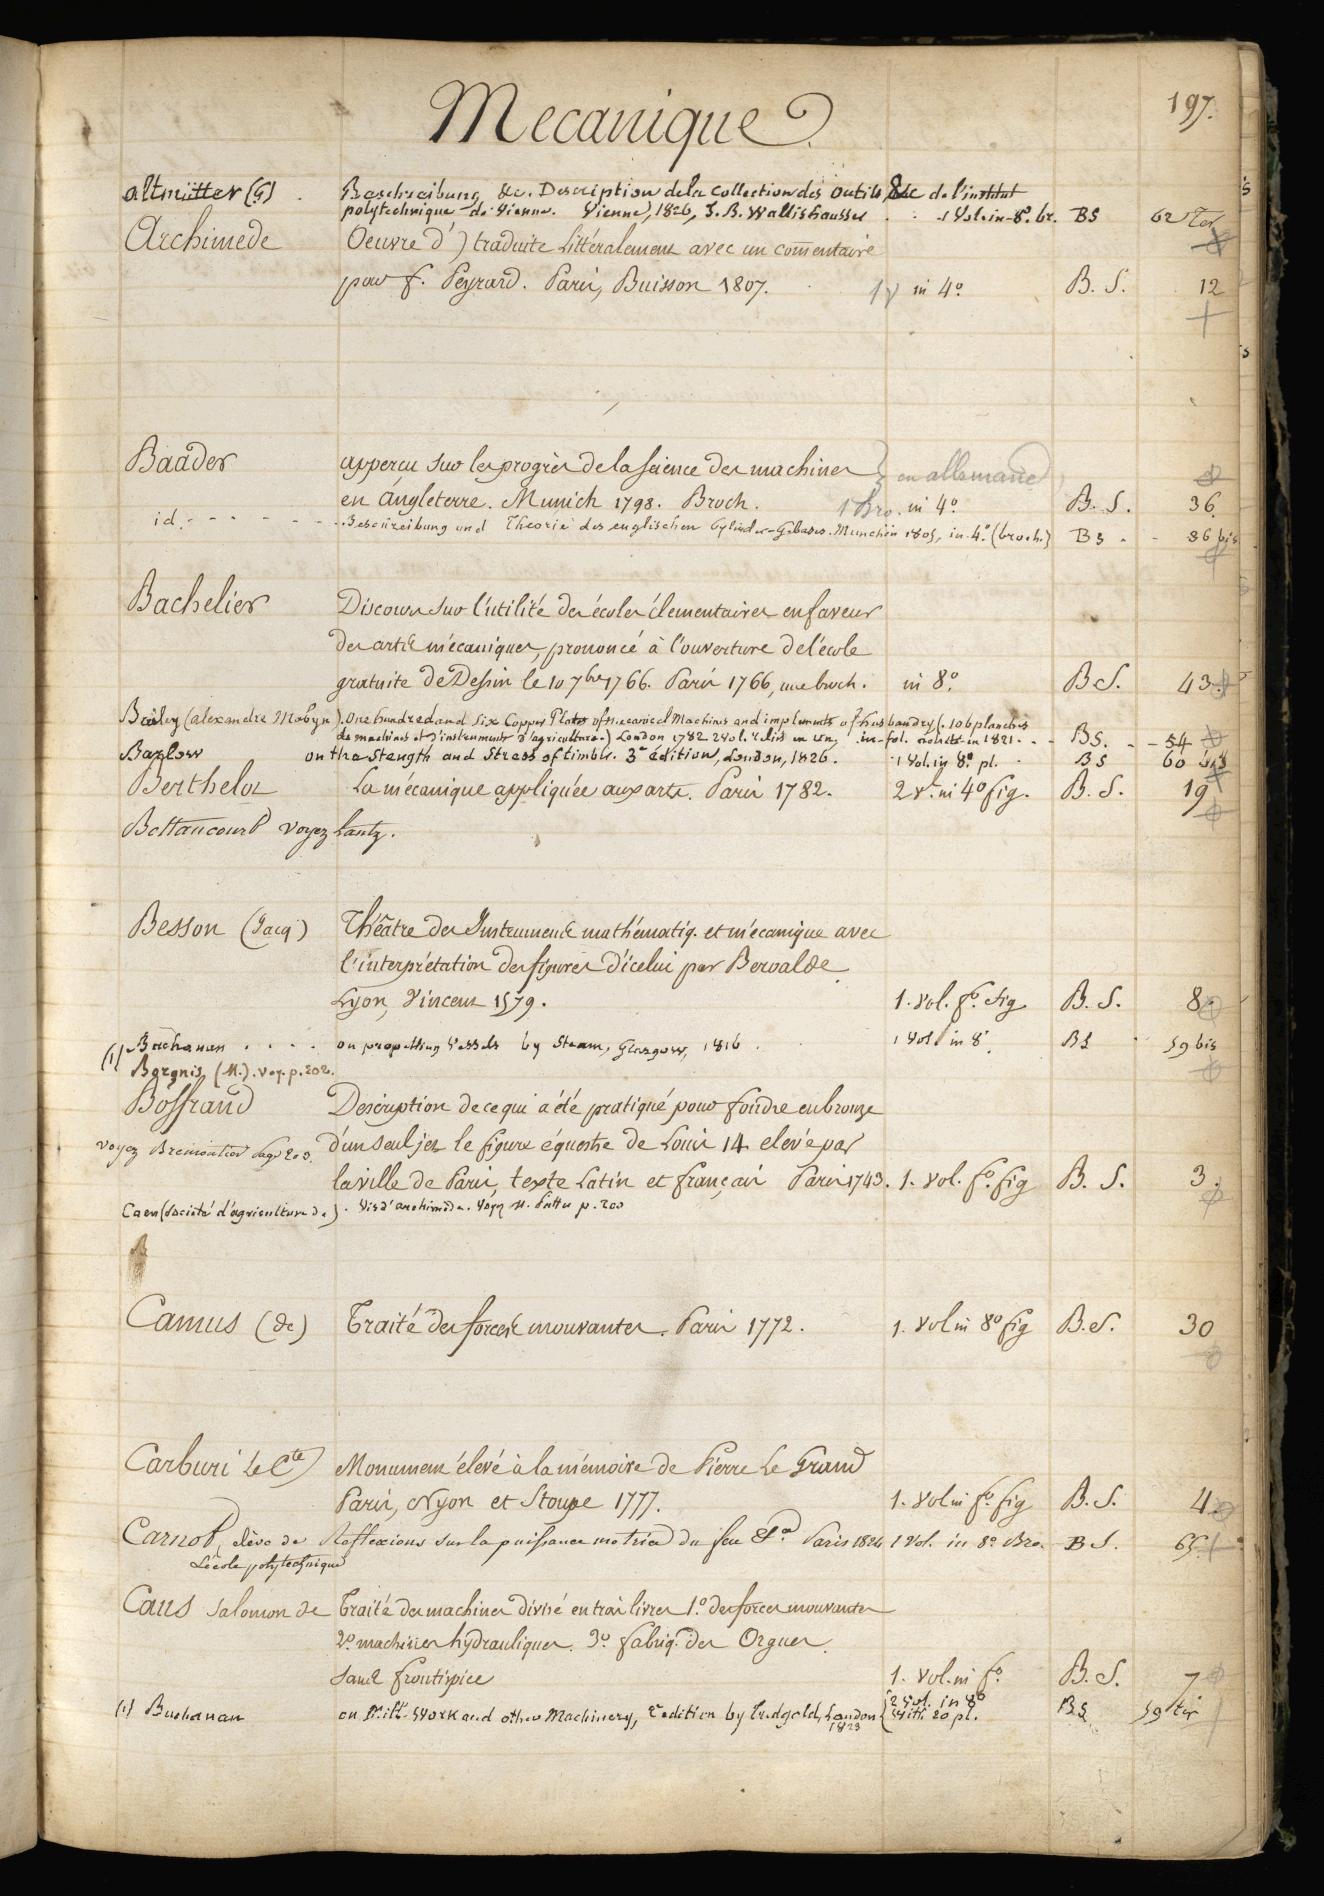 197.
Mecanique
altmütter (G) . Beschreibung &c. Description de la Collection des outils, &c de l'institut
polytechnique de Vienne. Vienne, 1826, J. B. Wallishausser . . 1 Vol. in-8º. br. BS 62 Ter
Archimede Oeuvre d') traduite littéralement avec un commentaire
par f. Peyrard. Paris, Buisson 1807. 1 v in 4º B. S. 12
Baader apperçu sur les progrès de la science des machines } en allemand
en Angleterre. Munich 1798. Broch. 1 Bro. in 4º B. S. 36
id. - - - - - - - Beschreibung und Theorie des englischen Cylinder-Gebläses. München 1805, in-4º. (broch.) BS . - 36 bis
Bachelier Discours sur l'utilité des écoles élementaires en faveur
des arts mécaniques, prononcé à l'ouverture de l'école
gratuite de Dessin le 10 7bre 1766. Paris 1766, une broch. in 8º. B. S. 43.
Bailey (alexandre Mabyn). One hundred and six Copper Plates of mecanical Machines and implements of husbandry (. 106 planches
de machines et d'instruments d'agriculture.) London 1782 2 vol. reliés en un, in-fol. achetés in 1821. - - BS. - - 54
Barlow on the Stength and Stress of timber. 3e édition, London, 1826. 1 Vol. in 8º. pl. . BS 60 bis
Berthelot La mécanique appliquée aux arts. Paris 1782. 2 vt. in 4º fig. B. S. 19
Bettancourt voyez Lantz.
Besson (Jacq) Théâtre des Instruments mathématiq. et mécanique avec
l'interprétation des figures d'icelui par Beroalde
Lyon, Vincent 1579. 1. vol. fº. fig B. S. 8.
(1) Buchanan . . . . on propelling Vessels by Steam, Glasgow, 1816 . 1 Vol in 8º. BS 59 bis
Borgnis (M.). voy. p. 202.
Boffrand Description de ce qui a été pratiqué pour fondre en bronze
voyez Bremontier page 203. d'un seul jet le figure équestre de Louis 14 elevé par
la ville de Paris, texte Latin et français Paris 1743. 1. vol. fº. fig B. S. 3.
Caen (Société d'agriculture de) . Vis d'archimède. Voyez M. Pattu p. 200
Camus (de) Traité des forces mouvantes. Paris 1772. 1. vol in 8º fig B. S. 30
Carburi le Cte Monument élevé à la mémoire de Pierre Le Grand
Paris, Nyon et Stoupe 1777. 1. vol in fº. fig B. S. 4.
Carnot, élève de Reflexions sur la puissance motrice du feu &a. Paris 1824 1 Vol. in 8º Bro. B S. 65.
l'école polytechnique
Caus Salomon de Traité des machines divisé en trois livres 1.º des forces mouvantes
2º. machines hydrauliques. 3º fabriq. des Orgues.
sans frontispice 1. vol. in fº. B. S. 7
(1) Buchanan on Mill-Work and other Machinery, 2e edition by Tredgold, London { 2 vol. in 8º BS 59 ter
1823 with 20 pl.